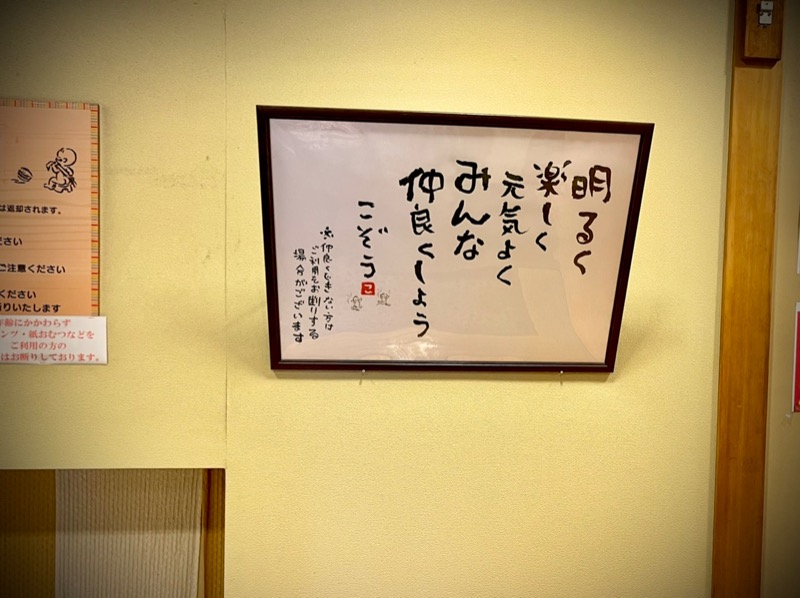 明るく
楽しく
元気よく
みんな
仲良くしよう
こぞう
こ
※仲良くできない方は
ご利用をお断りする
場合がございます
は返却されます。
ださい
ご注意ください
ください
断りいたします
年齢にかかわらず
ンツ・紙おむつなどを
ご利用の方の
はお断りしております。